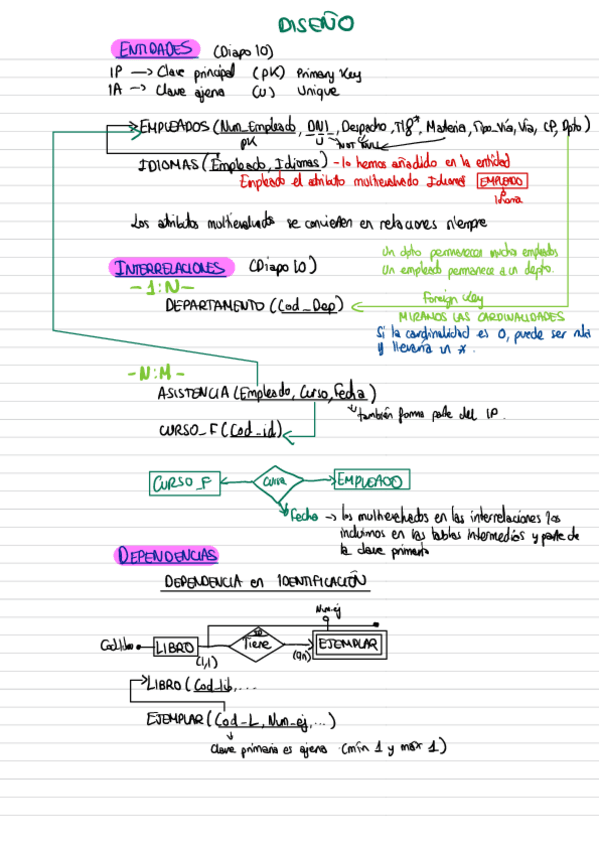 DISEÑO
ENTIDADES (Diapo 10)
IP → Clave principal (PK) Primary Key
IA → Clave ajena (U) Unique
EMPLEADOS (Num_Empleado, DNI, Despacho, Tlf*, Materia, Tipo_Vía, Vía, CP, Dpto)
PK U NOT NULL
IDIOMAS (Empleado, Idiomas) - lo hemos añadido en la entidad
Empleado el atributo multievaluado Idiomas EMPLEADO
Idioma
Los atributos multievaluados se convierten en relaciones siempre
Un dpto permanecen mucha empleados
Un empleado permanece a un depto.
INTERRELACIONES (Diapo 10)
- 1:N -
DEPARTAMENTO (Cod_Dep)
Foreign Key
MIRAMOS LAS CARDINALIDADES
Si la cardinalidad es 0, puede ser nula
y llevaría un *.
- N:M -
ASISTENCIA (Empleado, Curso, Fecha)
también forma parte del IP.
CURSO_F (Cod_id)
CURSO_F Cursa EMPLEADO
Fecha → los multievaluados en las interrelaciones los
incluimos en las tablas intermedias y parte de
la clave primaria
DEPENDENCIAS
DEPENDENCIA en IDENTIFICACIÓN
Num-ej
Cod_libro LIBRO Tiene EJEMPLAR
(1,1) (0,n)
LIBRO (Cod_lib, ...
EJEMPLAR (Cod_L, Num_ej, ...)
Clave primaria es ajena (mín 1 y max 1)